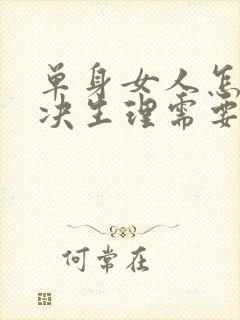 单身女人怎
决生理需要
何常在